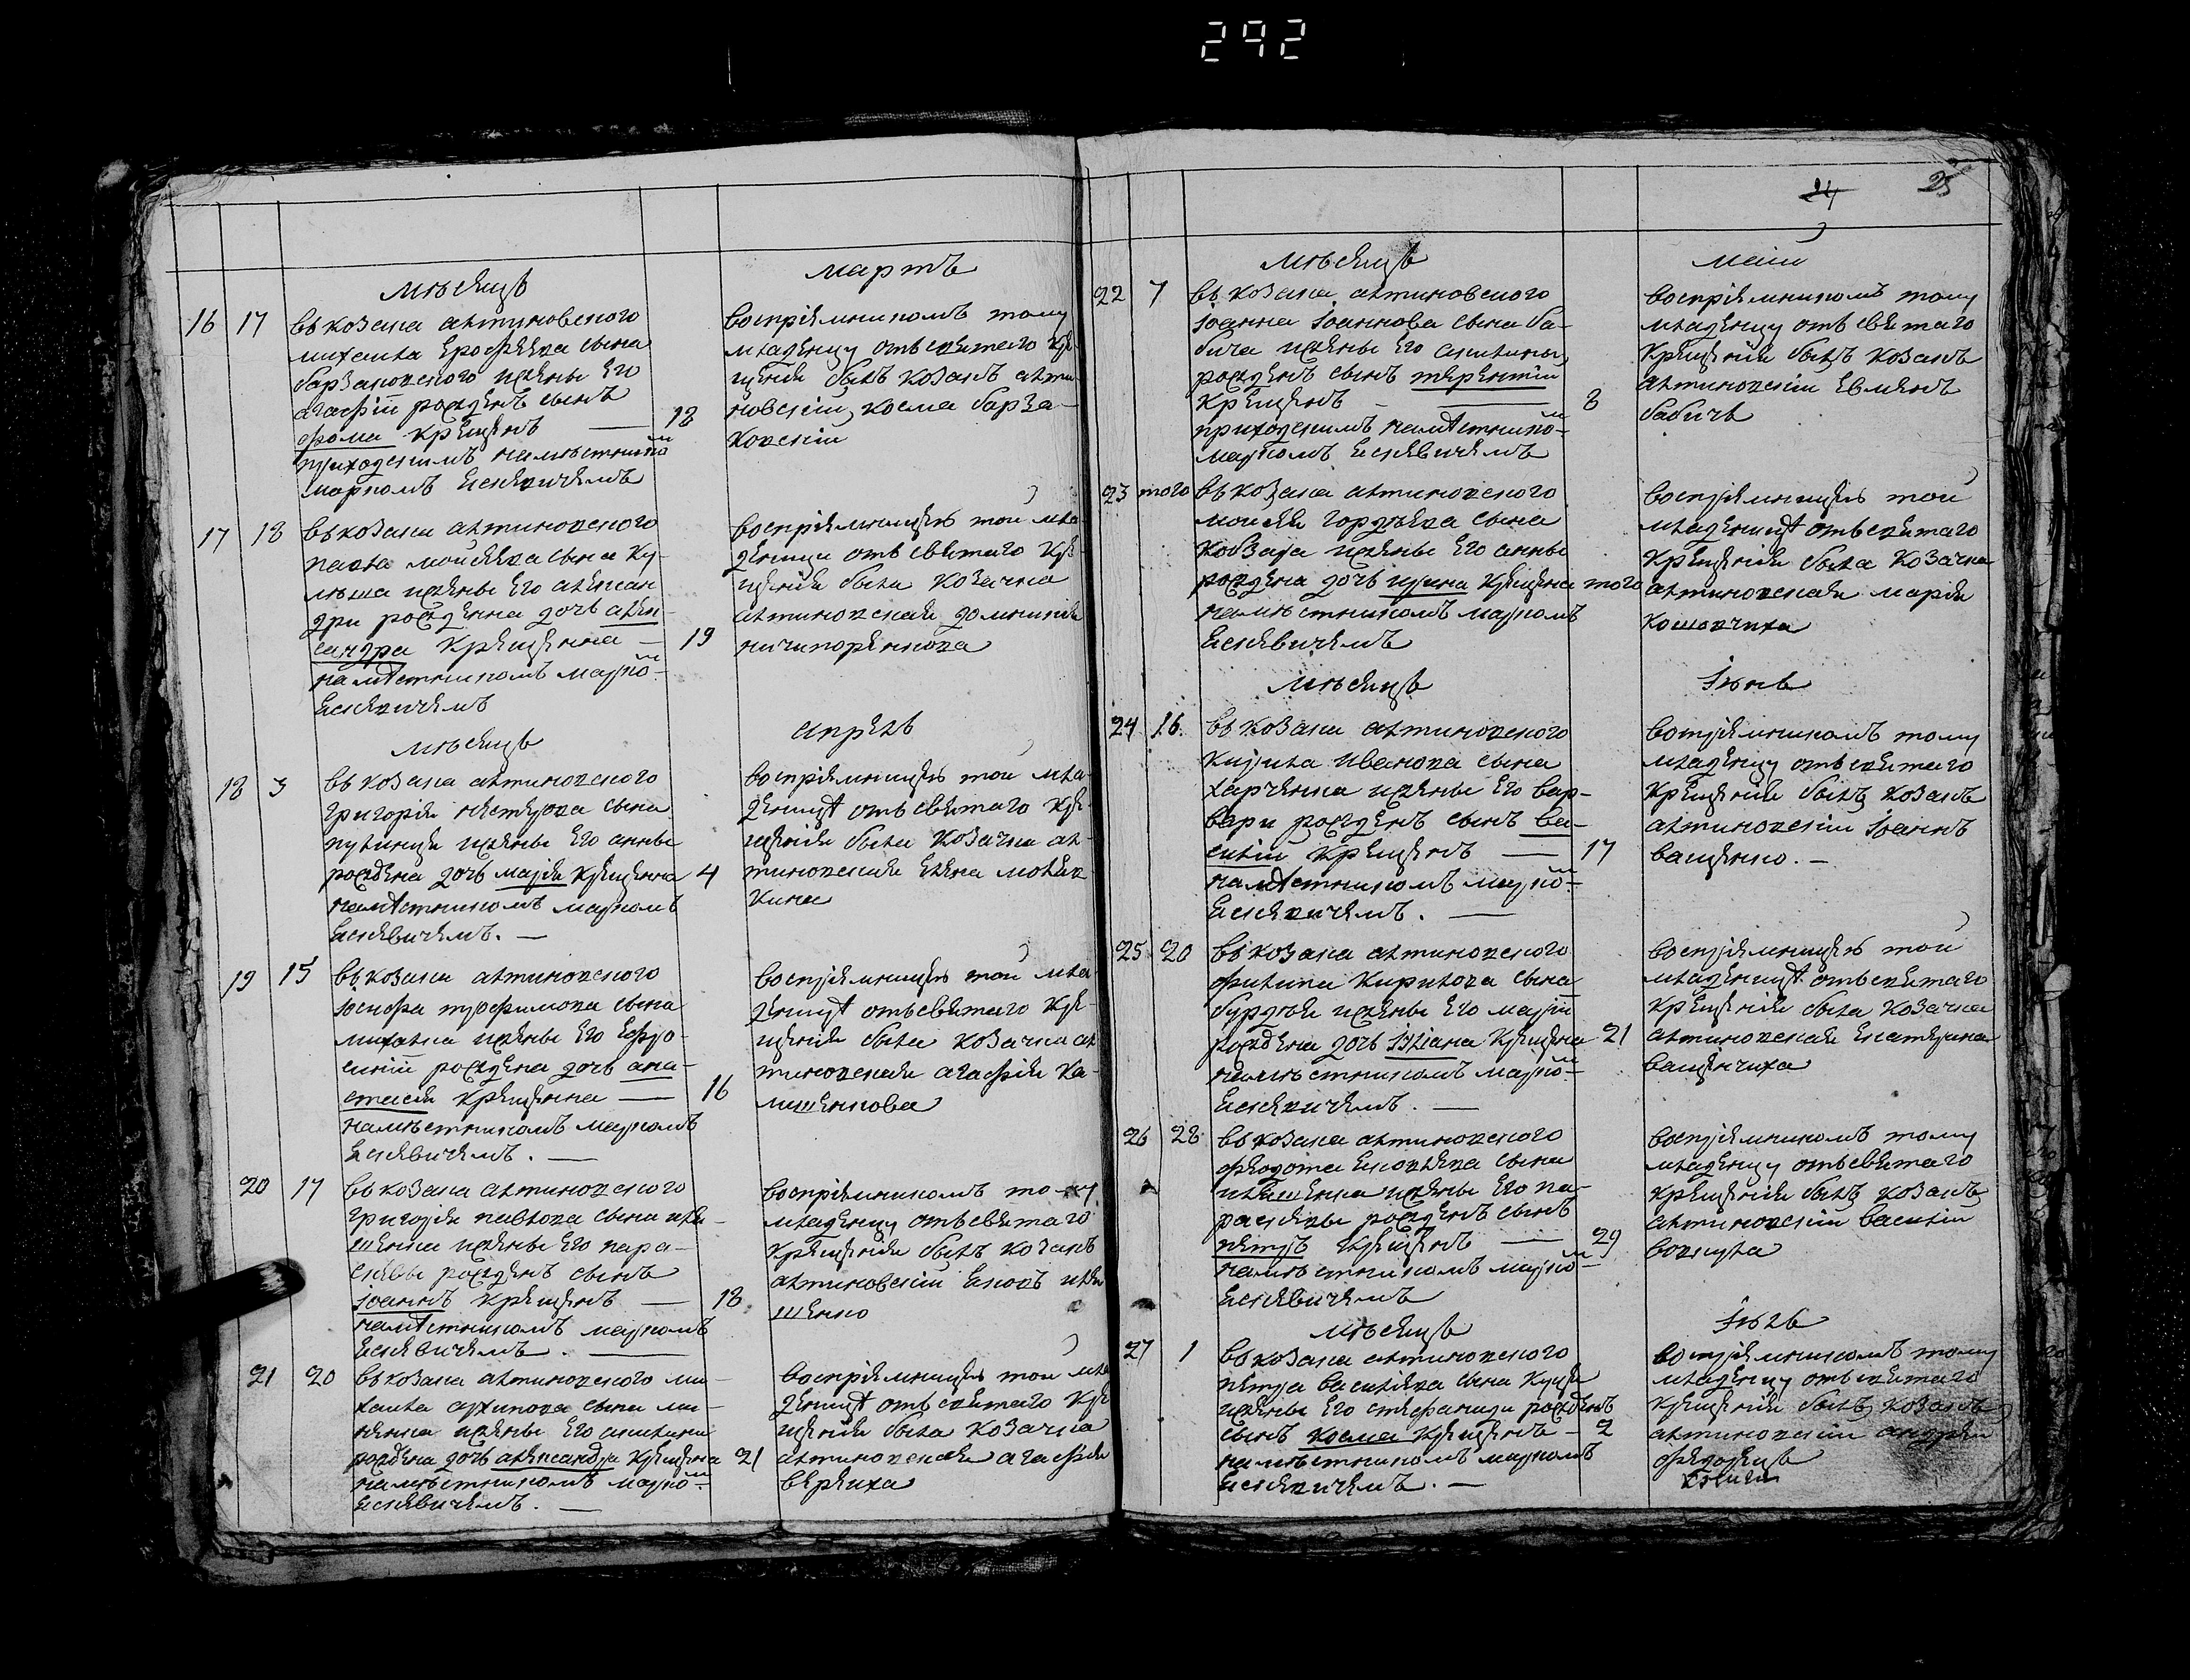 292
24 25
мѣсяцъ мартъ
16 17 въ козака алтиновского
михаила Ерофѣева сына
барзаковского и жены Его
агафіи рожденъ сынъ
фома крещенъ — 18
приходскимъ намѣстнико͠м
маркомъ Еснѣвичемъ
воспріемникомъ тому
младенцу отъ святаго кре-
щенія былъ козакъ алти-
новскій косма барза-
ковскій
17 18 въ козака алтиновского
павла мойсѣева сына ку-
и жены Его алексан
дри рожденна дочь алек-
сандра крещенна — 19
намѣстникомъ марко͠м
Еснѣвичемъ
воспріемницею той мла
деници отъ святаго кре-
щенія была козачка
алтиновская домникія
ничипоренкова
мѣсяцъ апрель
18 3 въ козака алтиновского
григорія нестерова сына
путинця и жены Его анны
рождена дочь марія крещенна 4
намѣстникомъ маркомъ
Еснѣвичемъ. —
воспріемницею той мла
деницѣ отъ святаго кре-
щенія была козачка ал-
тиновская Елена
19 15 въ козака алтиновского
іосифа трофимова сына
михална и жены Его Ефро-
синіи рождена дочь ана-
стасія крещенна — 16
намѣстникомъ маркомъ
Еснѣвичемъ. —
воспріемницею той мла
деницѣ отъ святаго кре-
щенія была козачка ал
тиновская агафія ка-
лишенкова
20 17 въ козака алтиновского
григорія павлова сына иля-
шенка и жены Его пара-
скевы рожденъ сынъ
іоаннъ крещенъ — 18
намѣстникомъ маркомъ
Еснѣвичемъ. —
воспріемникомъ тому
младенцу отъ святаго
крещенія былъ козакъ
алтиновскій Яковъ иля
шенко
21 20 въ козака алтиновского ми-
хаила архипова сына ми-
ненка и жены Его акилини
рождена дочь александра крещена 21
намѣстникомъ марко͠м
Еснѣвичемъ. —
воспріемницею той мла
деницѣ отъ святаго кре
щенія была козачка
алтиновская агафія
вереиха
мѣсяцъ маій
22 7 въ козака алтиновского
іоанна іоаннова сына ба-
бича и жены Его акилины
рожденъ сынъ терентій
крещенъ — 8
приходскимъ намѣстнико͠м
маркомъ Еснѣвичемъ
воспріемникомъ тому
младенцу отъ святаго
крещенія былъ козакъ
алтиновскій Евменъ
бабичъ
23 того въ козака алтиновского
моисея гордѣева сына
кобзара и жены Его анны
рождена дочь ирина крещена того
намѣстникомъ маркомъ
Еснѣвичемъ
воспріемницею той
младеницѣ отъ святаго
крещенія была козачка
алтиновская марія
кошовчиха
мѣсяцъ іюнь
24 16 въ козака алтиновского
кирила Иванова сына
харченка и жены Его вар-
вари рожденъ сынъ ва-
силій крещенъ — 17
намѣстникомъ марко͠м
Еснѣвичемъ. —
воспріемникомъ тому
младенцу отъ святаго
крещенія былъ козакъ
алтиновскій іоаннъ
ващенко. —
25 20 въ козака алтиновского
филипа кирилова сына
бурдѣя и жены Его маріи
рождена дочь іуліана крещена 21
намѣстникомъ марко͠м
Еснѣвичемъ. —
воспріемницею той
младеницѣ отъ святаго
крещенія была козачка
алтиновская Екатерина
ващенчиха
26 28 въ козака алтиновского
федота Яковлева сына
иляшенка и жены Его па-
раскевы рожденъ сынъ
петръ крещенъ — 29
намѣстникомъ марко͠м
Еснѣвичемъ
воспріемникомъ тому
младенцу отъ святаго
крещенія былъ козакъ
алтиновскій василій
вожула
мѣсяцъ іюль
27 1 въ козака алтиновского
петра василева сына куця
и жены Его стефаниди рожденъ
сынъ косма крещенъ — 2
намѣстникомъ маркомъ
Еснѣвичемъ. —
воспріемникомъ тому
младенцу отъ святаго
крещенія былъ козакъ
алтиновскій андрей